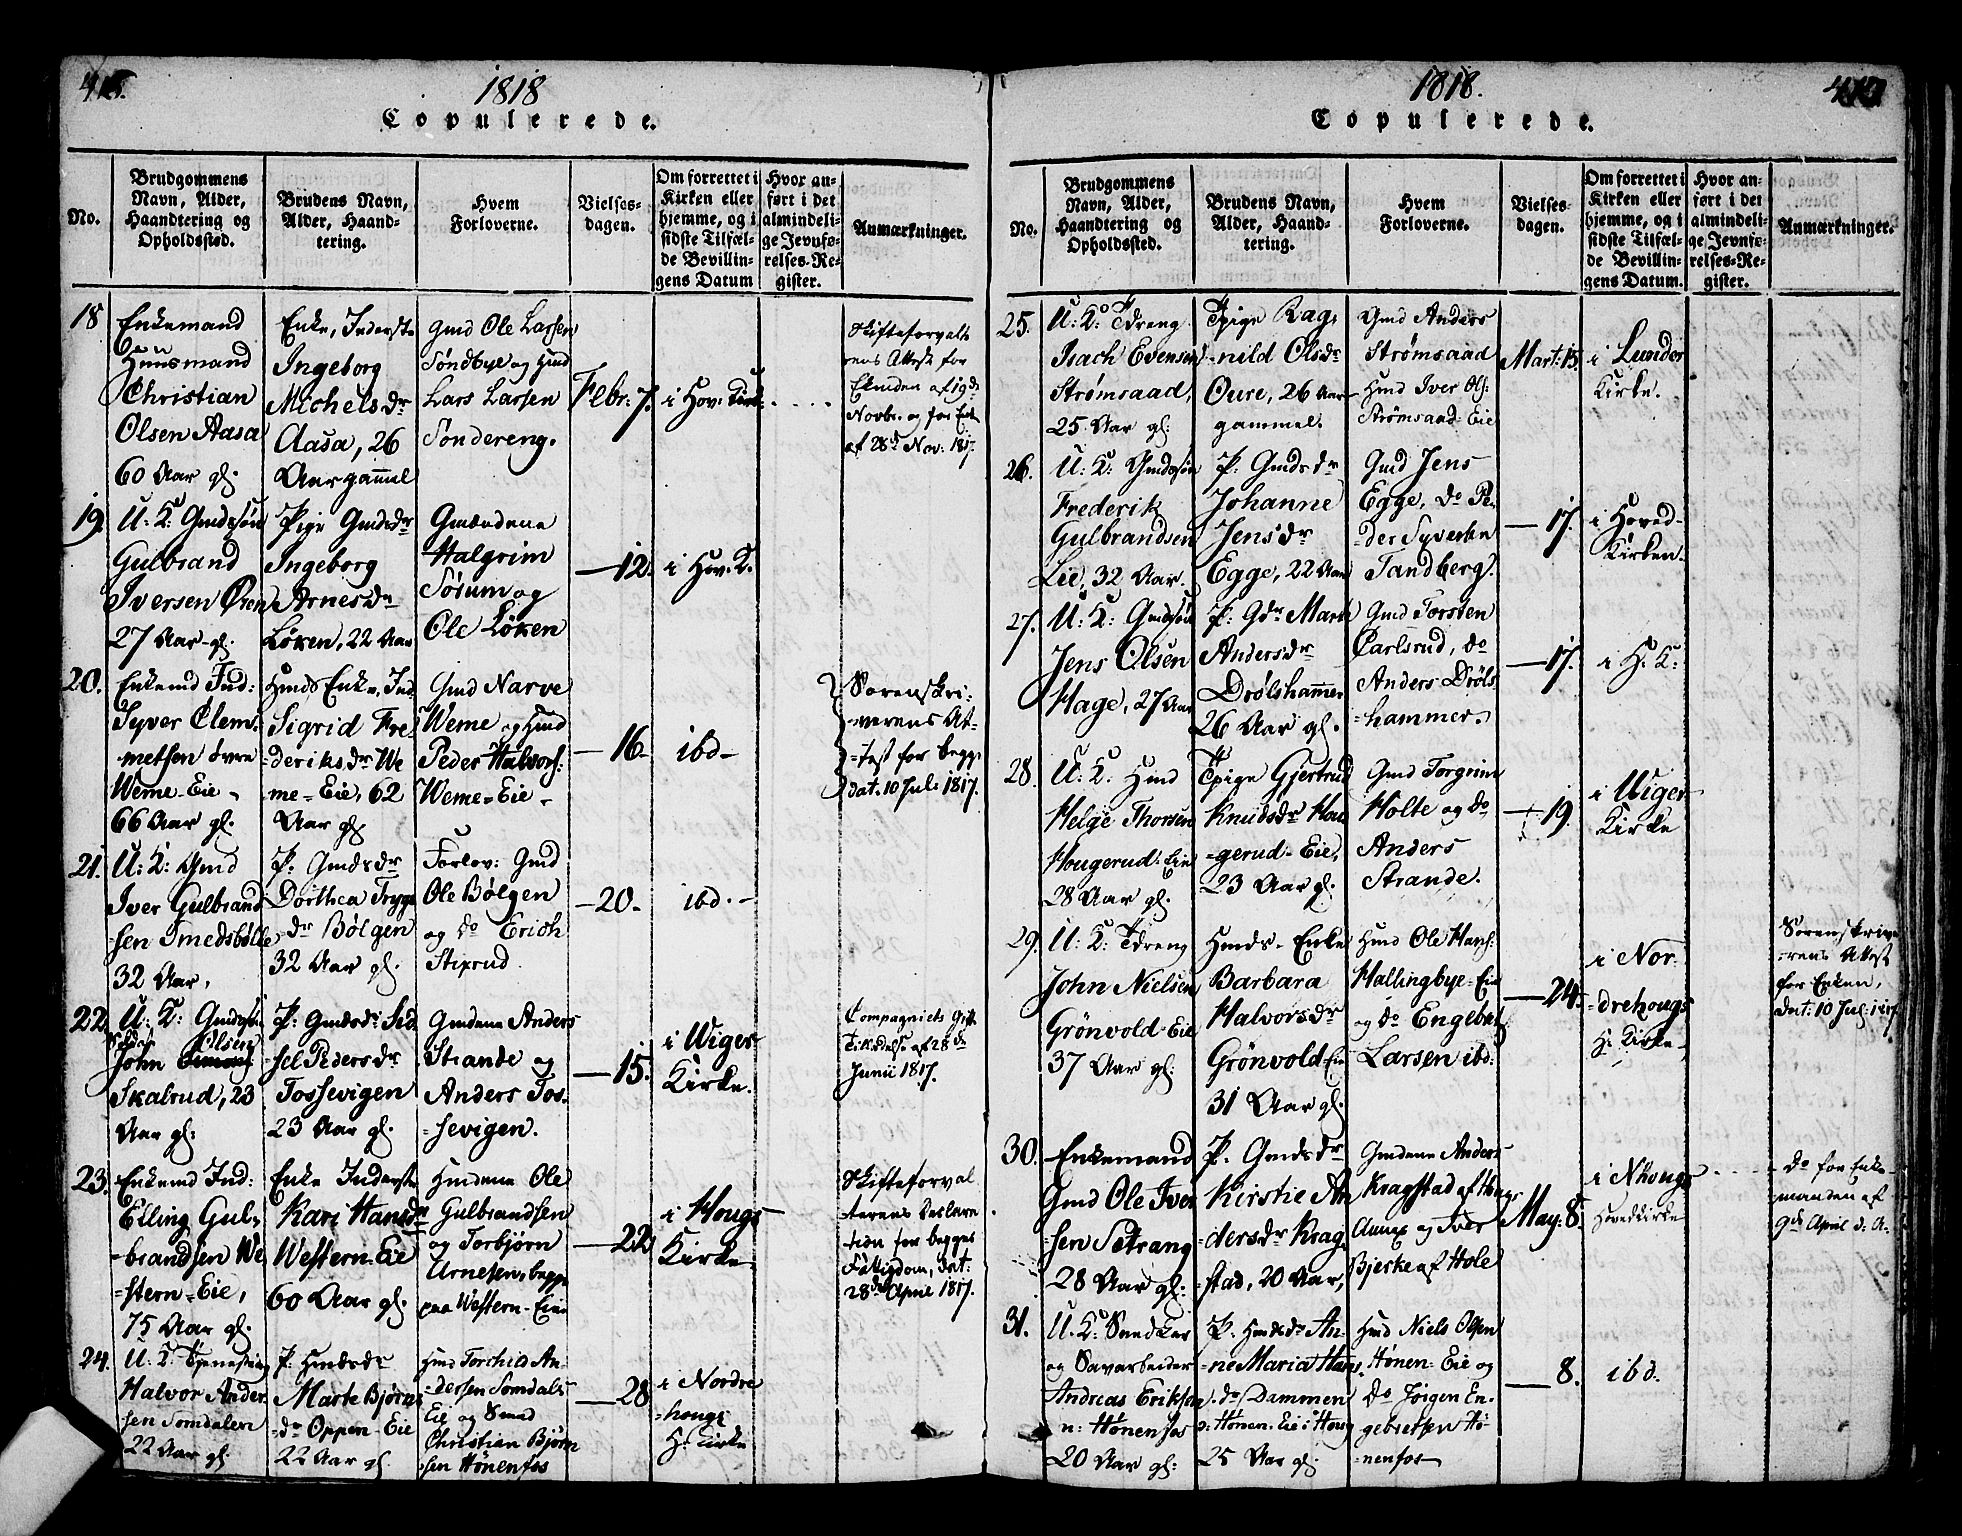 1818
Copulerede.
No.
Brudgommens
Navn, Alder,
Haandtering og
Opholdssted.
Brudens Navn,
Alder, Haand-
tering.
Hvem
Forloverne.
Vielses-
dagen.
Om forrettet i
Kirken eller
hjemme, og i
sidste Tilfæl-
de Bevillin-
gens Datum
Hvor an-
ført i det
almindeli-
ge Jevnfø-
relses-Re-
gister.
Anmærkninger.
18
Enkemand
Huusmand
Christian
Olsen Aasa
60 Aar gl.
Enke, Inderste
Ingeborg
Michelsdr
Aasa, 26
Aar gam̄el
Gmd Ole Larsen
Søndbye og Hmd
Lars Larsen
Søndereng.
Febr: 7.
i Hov: Kirk:
Skifteforvalte
rens Attest for
Ekmden af 19de
Novbr. og for Enk
af 28de Nov: 1817.
19
U: K: Gmdssøn
Gulbrand
Iversen Øren
27 Aar gl.
Pige Gmdsdr
Ingeborg
Arnesdr
Løken, 22 Aar
Gmændene
Halgrim
Sørum og
Ole Løken
—12.
i Hov. K.
20.
Enkemd Ind:
Syver Clem-
metsen øvre
Weme-Eie -
66 Aar gl.
Hmds Enke, Ind
Sigrid Fre-
deriksdr We
me=Eie, 62
Aar gl.
Gmd Narve
Weme og Hmd
Peder Halvors:
Weme=Eie -
—16-
ibd-
Sorenskri-
verens At-
=test for begge
dat. 10 Juli 1817.
21.
U: K: Gmd
Iver Gulbrand
sen Smedsbølle
32 Aar,
P: Gmdsdr
Dorthea Trygs
dr Bølgen
32 Aar gl.
Forlov: Gmd
Ole Bølgen
og do Erich
Stixrud.
—20-
ibd. -
22.
U: K: Gmdssøn
Peder Olsen
John
Skalrud, 23
Aar gl:
P: Gmdsdr Sid
sel Pedersdr
Tossevigen
23 Aar gl.
Gmdene Anders
Strande og
Anders Tos-
=sevigen.
—15.
i Wiger
Kirke.
Compagniets Gift
Tilladelse af 28de
Junii 1817.
23.
Enkemd Ind:
Elling Gul-
brandsen We
=stern=Eie,
75 Aar gl.
Enke Inderste
Kari Hansdr
Western-Eie
60 Aar gl.
Hmdene Ole
Gulbrandsen
og Torbjørn
Arnesen, begge
paa Western-Eier
—22
i Hougs
Kirke
Skifteforval
terens Declara
tion for begges
Fattigdom, dat:
28de April 1817.
24.
U: K: Tjenestdreng
Halvor Ander
sen Somdalen
22 Aar gl.
P: Hmdsdr
Marte Bjørns
dr Oppen-Eie
22 Aar gl.
Hmd Torchild An-
dersen Somdals
Eie og Smed
Christian Bjørn
sen Hønenfos
—28
i Nordre
=hougs
H: Kirke
1818.
Copulerede.
No.
Brudgommens
Navn, Alder,
Haandtering og
Opholdssted.
Brudens Navn,
Alder, Haand-
tering.
Hvem
Forloverne.
Vielses-
dagen.
Om forrettet i
Kirken eller
hjemme, og i
sidste Tilfæl-
de Bevillin-
gens Datum.
Hvor an-
ført i det
almindeli-
ge Jevnfø-
relses-Re-
gister.
Anmærkninger.
25.
U: K: Tdreng
Isach Evensen
Strømsaad,
25 Aar gl:
Tpige Rag-
=nild Olsdr
Oure, 26 Aar
gammel.
Gmd Anders
Strømsaad
Hmd Iver Ols:
Strømsaad: Eie
Mart: 15.
i Lunder
Kirke.
26.
U: K: Gmdssøn
Frederik
Gulbrandsen
Lie, 32 Aar.
P: Gmdsdr
Johanne
Jensdr
Egge, 22 Aar
Gmd Jens
Egge, do Pe-
der Syversen
Tandberg.
—17.
i Hoved-
Kirken.
27.
U: K: Gmdssøn
Jens Olsen
Hage, 27 Aar
P: Gdr Marte
Andersdr
Drølsham̄er
26 Aar gl.
Gmd Torsten
Carlsrud, do
Anders Drøls
=hammer.
—17.
i H. K:
28.
U: K. Hmd
Helge Thorsen
Hougerud: Eie
28 Aar gl.
Tpige Gjertrud
Knudsdr Hou
=gerud-Eie,
23 Aar gl.
Gmd Torgrim
Holte og do
Anders
Strande.
19.
i Wiger
Kirke
29.
U: K: Tdreng
John Nielsen
Grönvold-Eie
37 Aar gl:
Hmds-Enke
Barbara
Halvorsdr
Grönvold-Eie
31 Aar gl.
Hmd Ole Hans:
Hallingbye=Eie
og do Engebret
Larsen ibd.
—24.
i Nor-
=drehougs
H: Kirke-
Sorenskrive
rens Attest
for Enken,
dat: 10 Jul: 1817
30.
Enkemand
Gmd Ole Iver
sen Setrang
28 Aar gl:
P. Gmdsdr
Kirstie An
dersdr Krag-
stad, 20 Aar,
Gmdene Anders
Kragstad af Hougs
Annex og Iver
Bjerke af Hole
May: 8.
i Nhougs
Hovedkirke
do for Enke-
manden af
9de April d: A.
31.
U. K: Snedker
og Savarbeider
Andreas Eriksen
n: Hönenfos
20 Aar gl:
P. Hmdsdr An-
=ne Maria Hans
dr Dammen
n: Hønen-Eie i Houg
25 Aar gl.
Hmd Niels Olsen
Hønen-Eie og
do Jörgen En-
gebretsen Hø-
=nenfos
—8.
ibd.